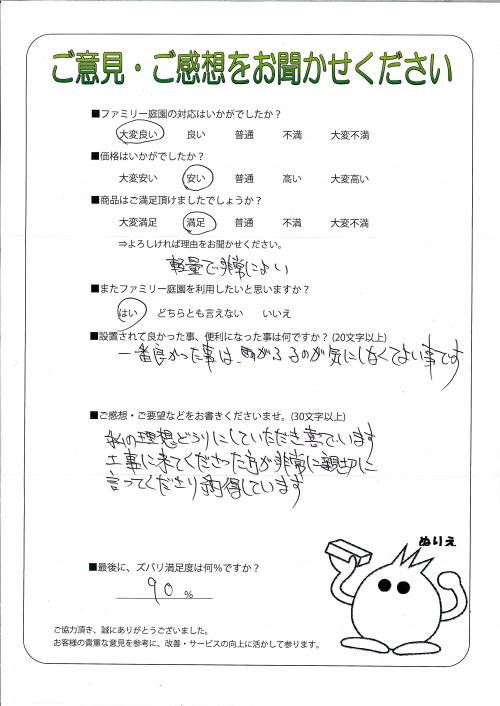 ご意見・ご感想をお聞かせください
■ファミリー庭園の対応はいかがでしたか？
大変良い 良い 普通 不満 大変不満
■価格はいかがでしたか？
大変安い 安い 普通 高い 大変高い
■商品はご満足頂けましたでしょうか？
大変満足 満足 普通 不満 大変不満
⇒よろしければ理由をお聞かせください。
軽量で非常によい
■またファミリー庭園を利用したいと思いますか？
はい どちらとも言えない いいえ
■設置されて良かった事、便利になった事は何ですか？(20文字以上)
一番良かった事は、雨がふるのが気にしなくてよい事です
■ご感想・ご要望などをお書きくださいませ。(30文字以上)
私の理想どうりにしていただき喜でいます
工事に来てくださった方が非常に親切に
言ってくださり納得しています
ぬりえ
■最後に、ズバリ満足度は何％ですか？
90 %
ご協力頂き、誠にありがとうございました。
お客様の貴重な意見を参考に、改善・サービスの向上に活かして参ります。